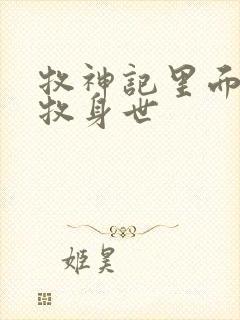 牧神記里
牧身世
姬昊